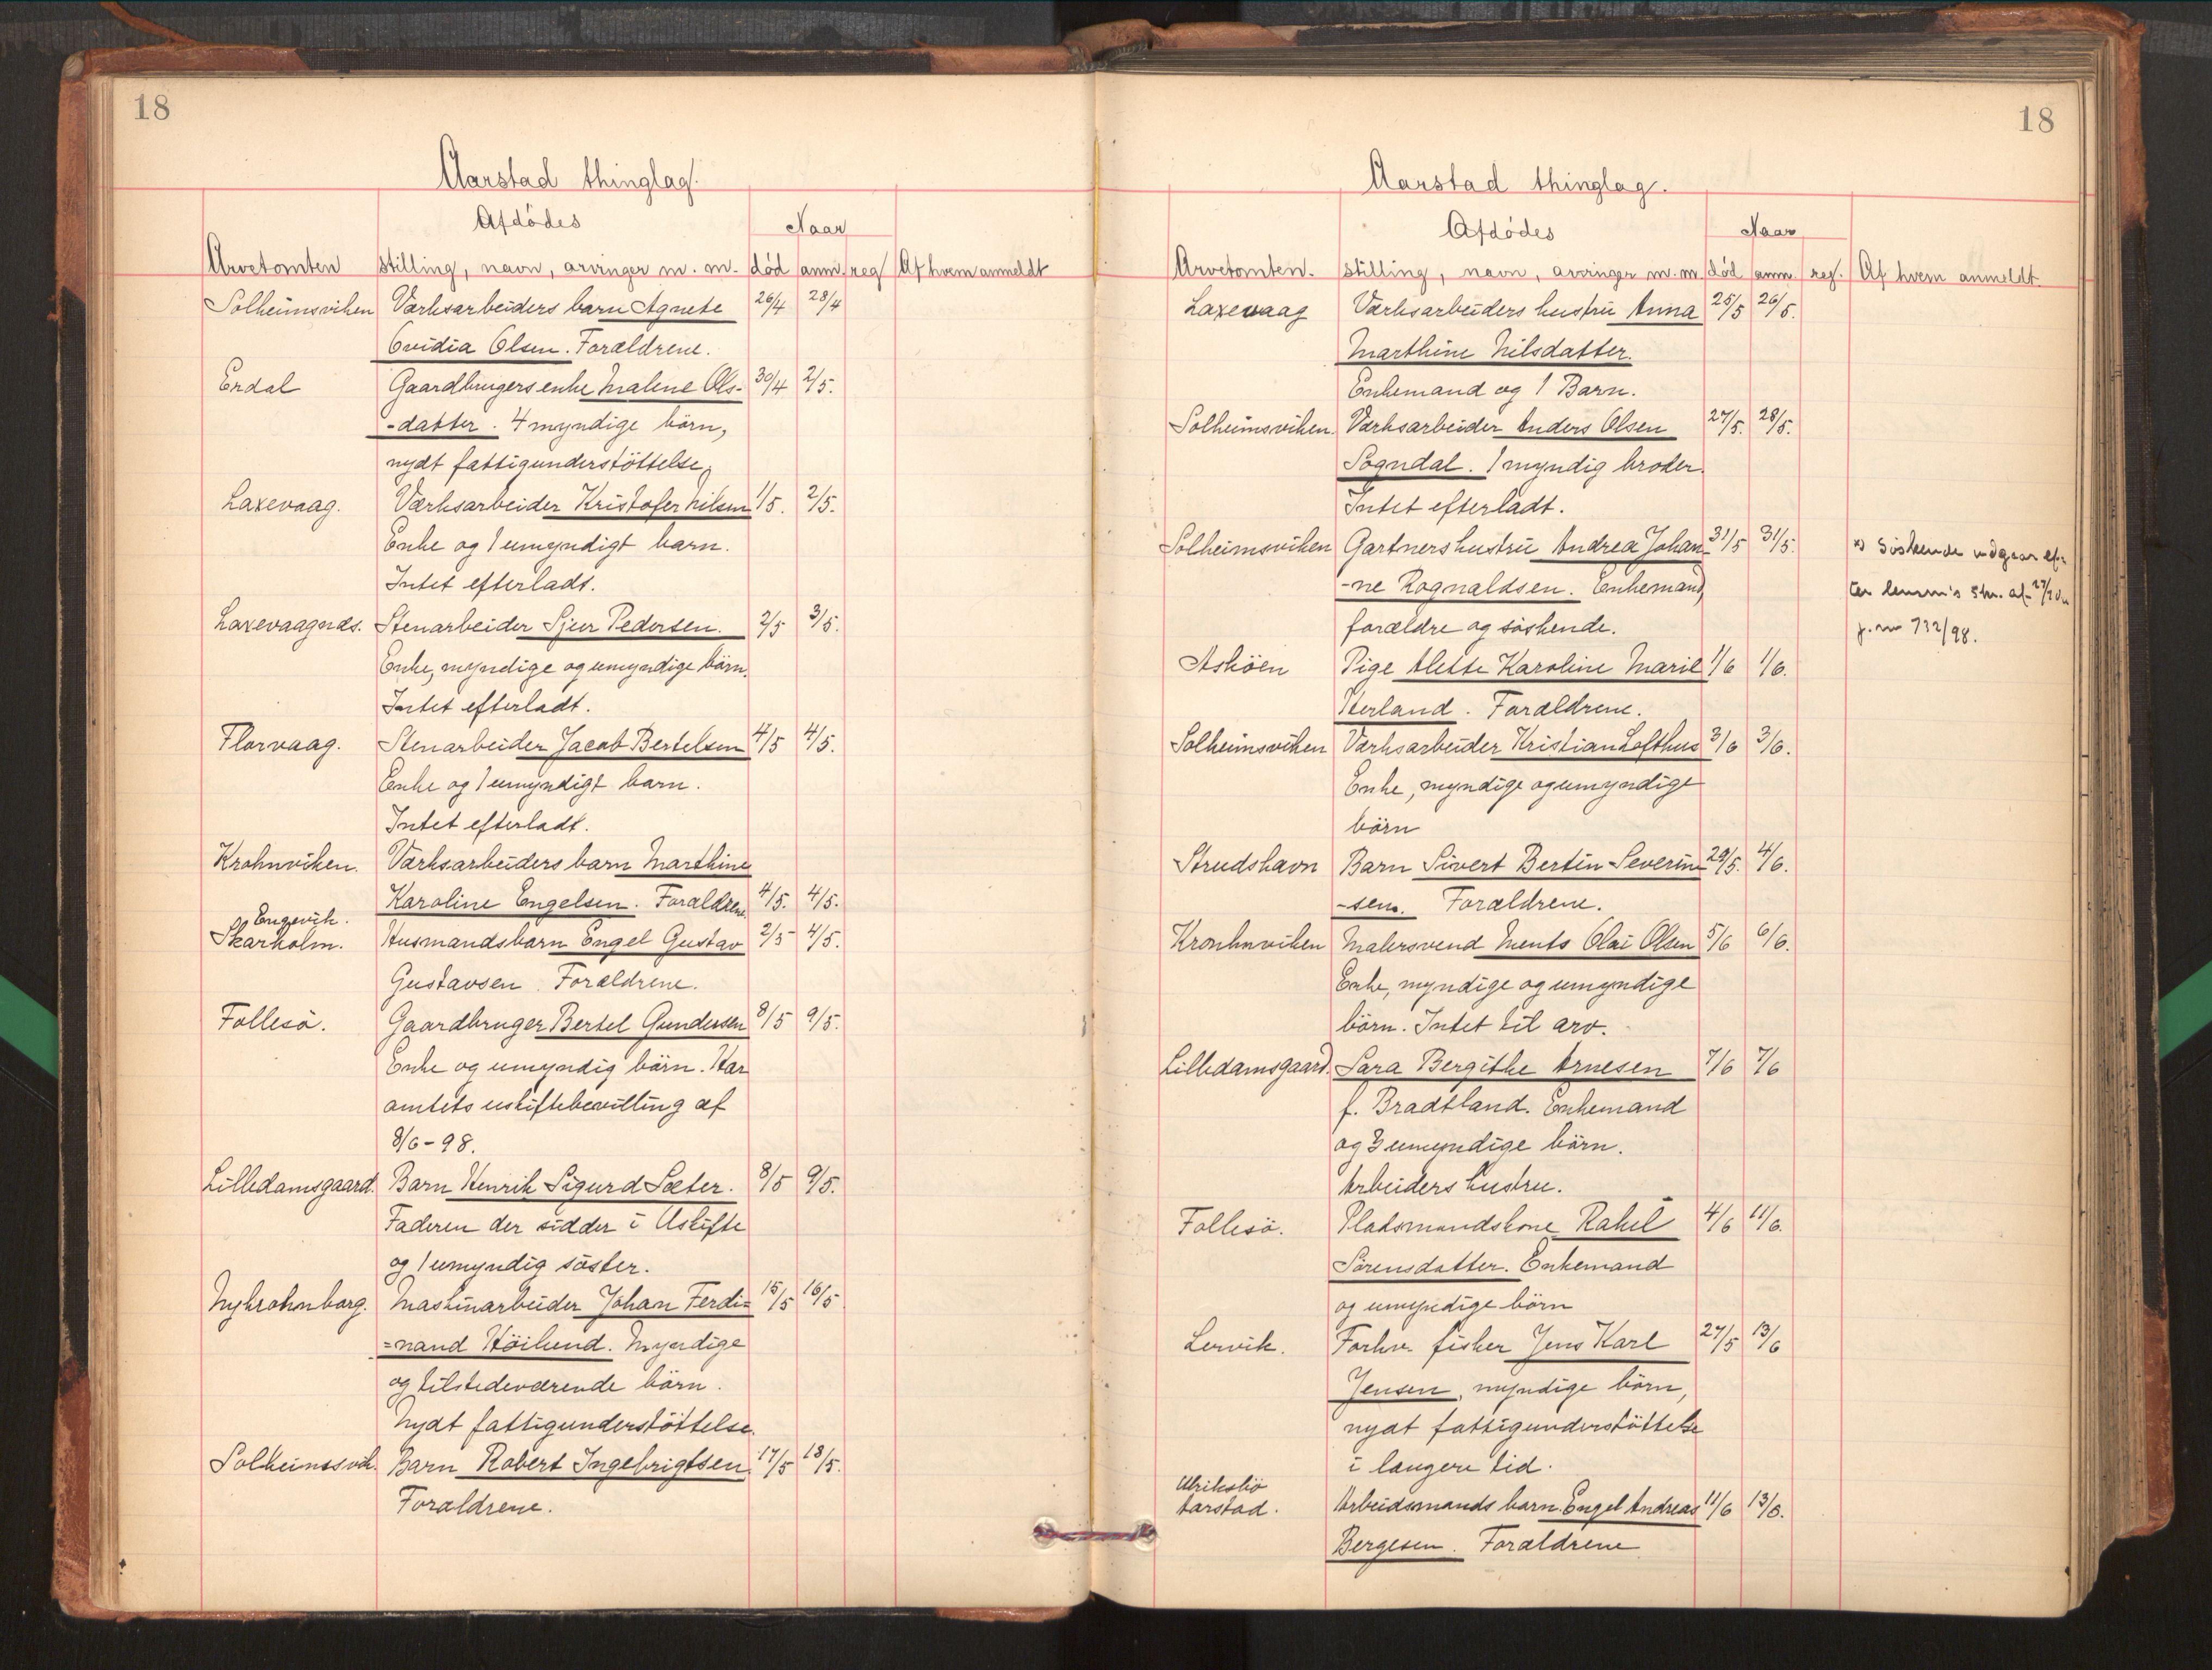 18
Aarstad thinglag.
Afdödes
Naar
Arvetomten stilling, navn, arvinger m. m. död anm. reg Af hvem anmeldt
Solheimsviken Værksarbeiders barn Agnete 26/4 28/4
Ovidia Olsen. Forældrene.
Erdal Gaardbrugers enke Malene Ols- 30/4 2/5.
-datter. 4 myndige börn,
nydt fattigunderstöttelse,
Laxevaag. Værksarbeider Kristofer Nilsen 1/5. 2/5.
Enke og 1 umyndigt barn.
Intet efterladt.
Laxevaagnæs. Stenarbeider Sjur Pedersen. 2/5 3/5.
Enke, myndige og umyndige börn.
Intet efterladt.
Florvaag. Stenarbeider Jacob Bertelsen 4/5 4/5.
Enke og 1 umyndigt barn.
Intet efterladt.
Krohnviken. Værksarbeiders barn Marthine
Karoline Engelsen. Forældrene 4/5. 4/5.
Engevik.
Skarholm. Husmandsbarn Engel Gustav 2/5 4/5.
Gustavsen. Forældrene.
Follesö. Gaardbruger Bertel Gundersen 8/5 9/5.
Enke og umyndig börn. Har
amtets uskiftebevilling af
8/6-98.
Lilledamsgaard. Barn Henrik Sigurd Sæter. 8/5 9/5.
Faderen der sidder i Uskifte
og 1 umyndig söster.
Nykrohnborg. Maskinarbeider Johan Ferdi= 15/5 16/5
=nand Höilund. Myndige
og tilstedeværende börn.
Nydt fattigunderstöttelse.
Solheimssvik. Barn Robert Ingebrigtsen. 17/5 18/5.
Forældrene.
18
Aarstad thinglag.
Afdödes
Naar
Arvetomten. stilling, navn, arvinger m. m. död anm. reg. Af hvem anmeldt.
Laxevaag Værksarbeiders hustru Anna 25/5 26/5.
Marthine Nilsdatter.
Enkemand og 1 Barn.
Solheimsviken. Værksarbeider Anders Olsen 27/5. 28/5.
Sogndal. 1 myndig broder.
Intet efterladt.
Solheimsviken Gartners hustru Andrea Johan- 31/5 31/5. x) Söskende udgaar ef-
-ne Rognaldsen. Enkemand, ter lensm's skr. af 27/7
forældre og söskende. j. no 732/98.
Asköen Pige Alette Karoline Marie 1/6 1/6.
Herland. Forældrene.
Solheimsviken Værksarbeider Kristian Lofthus 3/6 3/6.
Enke, myndige og umyndige
börn
Strudshavn Barn Sivert Bertin Severin 29/5. 4/6.
-sen. Forældrene.
Kronhnviken Malersvend Ments Olai Olsen 5/6 6/6.
Enke, myndige og umyndige
börn. Intet til arv.
Lilledamsgaard. Sara Bergithe Arnesen 7/6 7/6
f. Bradtland. Enkemand
og 3 umyndige börn.
Arbeiders hustru.
Follesö. Pladsmandskone Rakel 4/6 11/6.
Sörensdatter. Enkemand
og umyndige börn
Lervik. Forhv. fisker Jens Karl 27/5 13/6
Jensen, myndige börn,
nydt fattigunderstöttelse
i længere tid.
Ulriksbö
Aarstad. Arbeidsmands barn Engel Andreas 11/6 13/6.
Bergesen. Forældrene